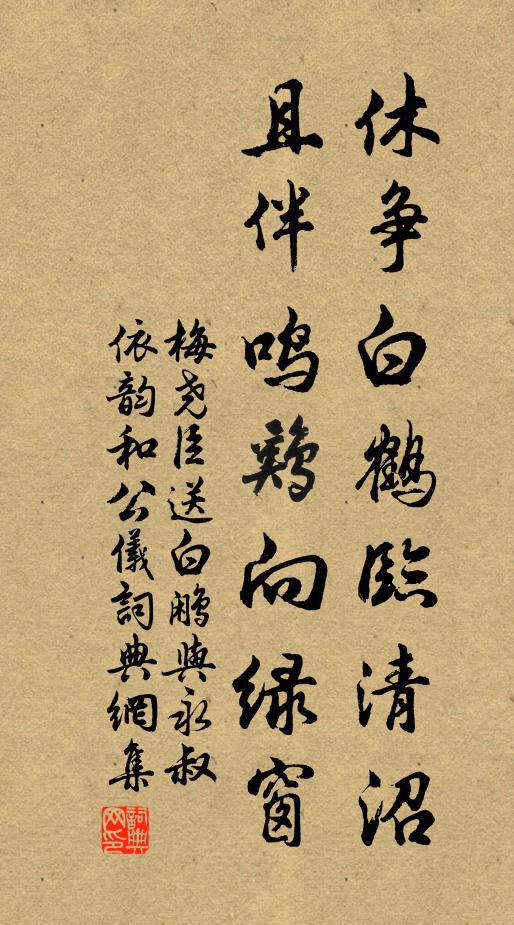 休争白鶴臨清沼
且伴鸣鷄向绿窗
梅尧臣送白鷴與永叔
依韵和公儀詞典網集
詞典网印